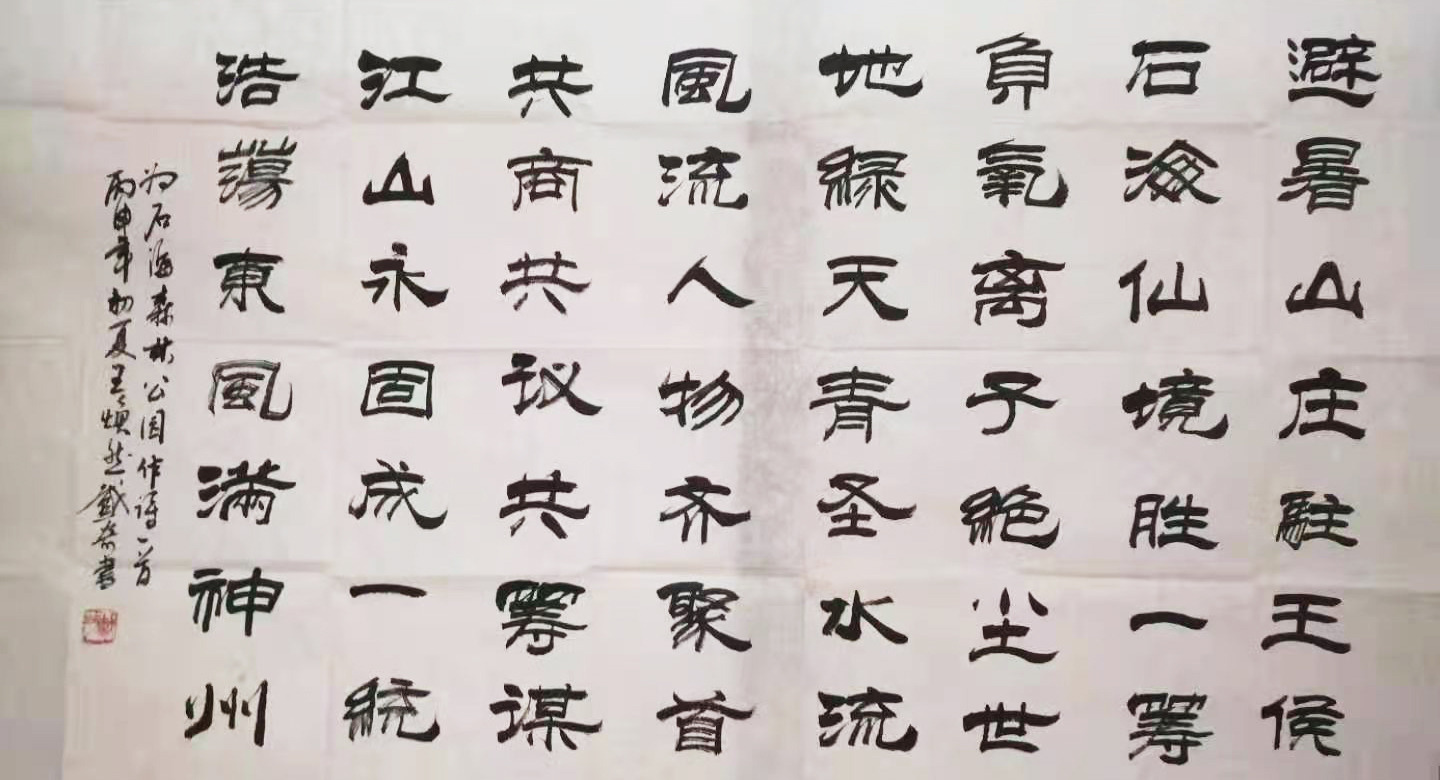 避暑山庄駐王侯
石海仙境胜一筹
負氧離子絶尘世
地绿天青圣水流
風流人物齐聚首
共商共议共筹謀
江山永固成一統
浩蕩東風满神州
为石海森林公园作诗一首
丙申年初夏王焕然